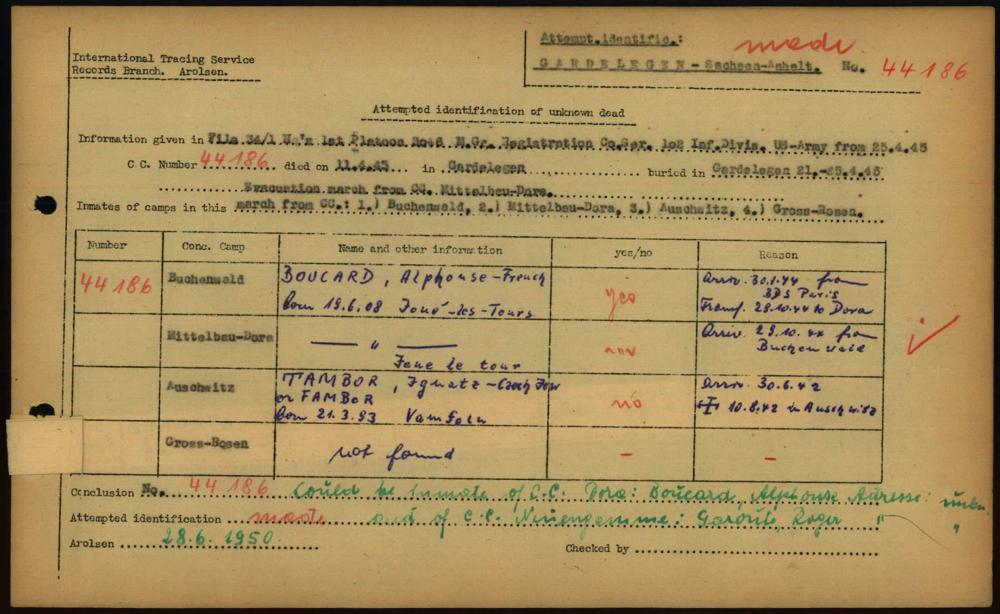 Attempt.identific.: made
International Tracing Service
Records Branch. Arolsen.
GARDELEGEN - Sachsen-Anhalt. No. 44186
Attempted identification of unknown dead
Information given in File 34/1 1st Platoon M.Gr. Registration Co.Ser. 102 Inf.Divis. US-Army from 25.4.45
C.C. Number 44186 died on 11.4.45 in Gardelegen buried in Gardelegen 21.-25.4.45
Evacuation march from CC. Mittelbau-Dora.
Inmates of camps in this march from CC.: 1.) Buchenwald, 2.) Mittelbau-Dora, 3.) Auschwitz, 4.) Gross-Rosen.
Number Conc. Camp Name and other information yes/no Reason
44186 Buchenwald BOUCARD, Alphonse-French yes Arriv. 30.1.44 from
BDS Paris
born 19.6.08 Joué-les-Tours Transf. 29.10.44 to Dora
Mittelbau-Dora — " — Arriv. 29.10.44 from
Buchenwald
Jeue le tour
Auschwitz TAMBOR, Ignatz-Czech Jew no Arriv. 30.6.42
or FAMBOR 10.8.42 in Auschwitz
born 21.3.93
Gross-Rosen not found - -
Conclusion No. 44186 Could be inmate of C.C. Dora: Boucard, Alphonse Adresse: unkn.
Attempted identification made and of C.C. Neuengamme: Roger " "
Arolsen 28.6.1950 Checked by